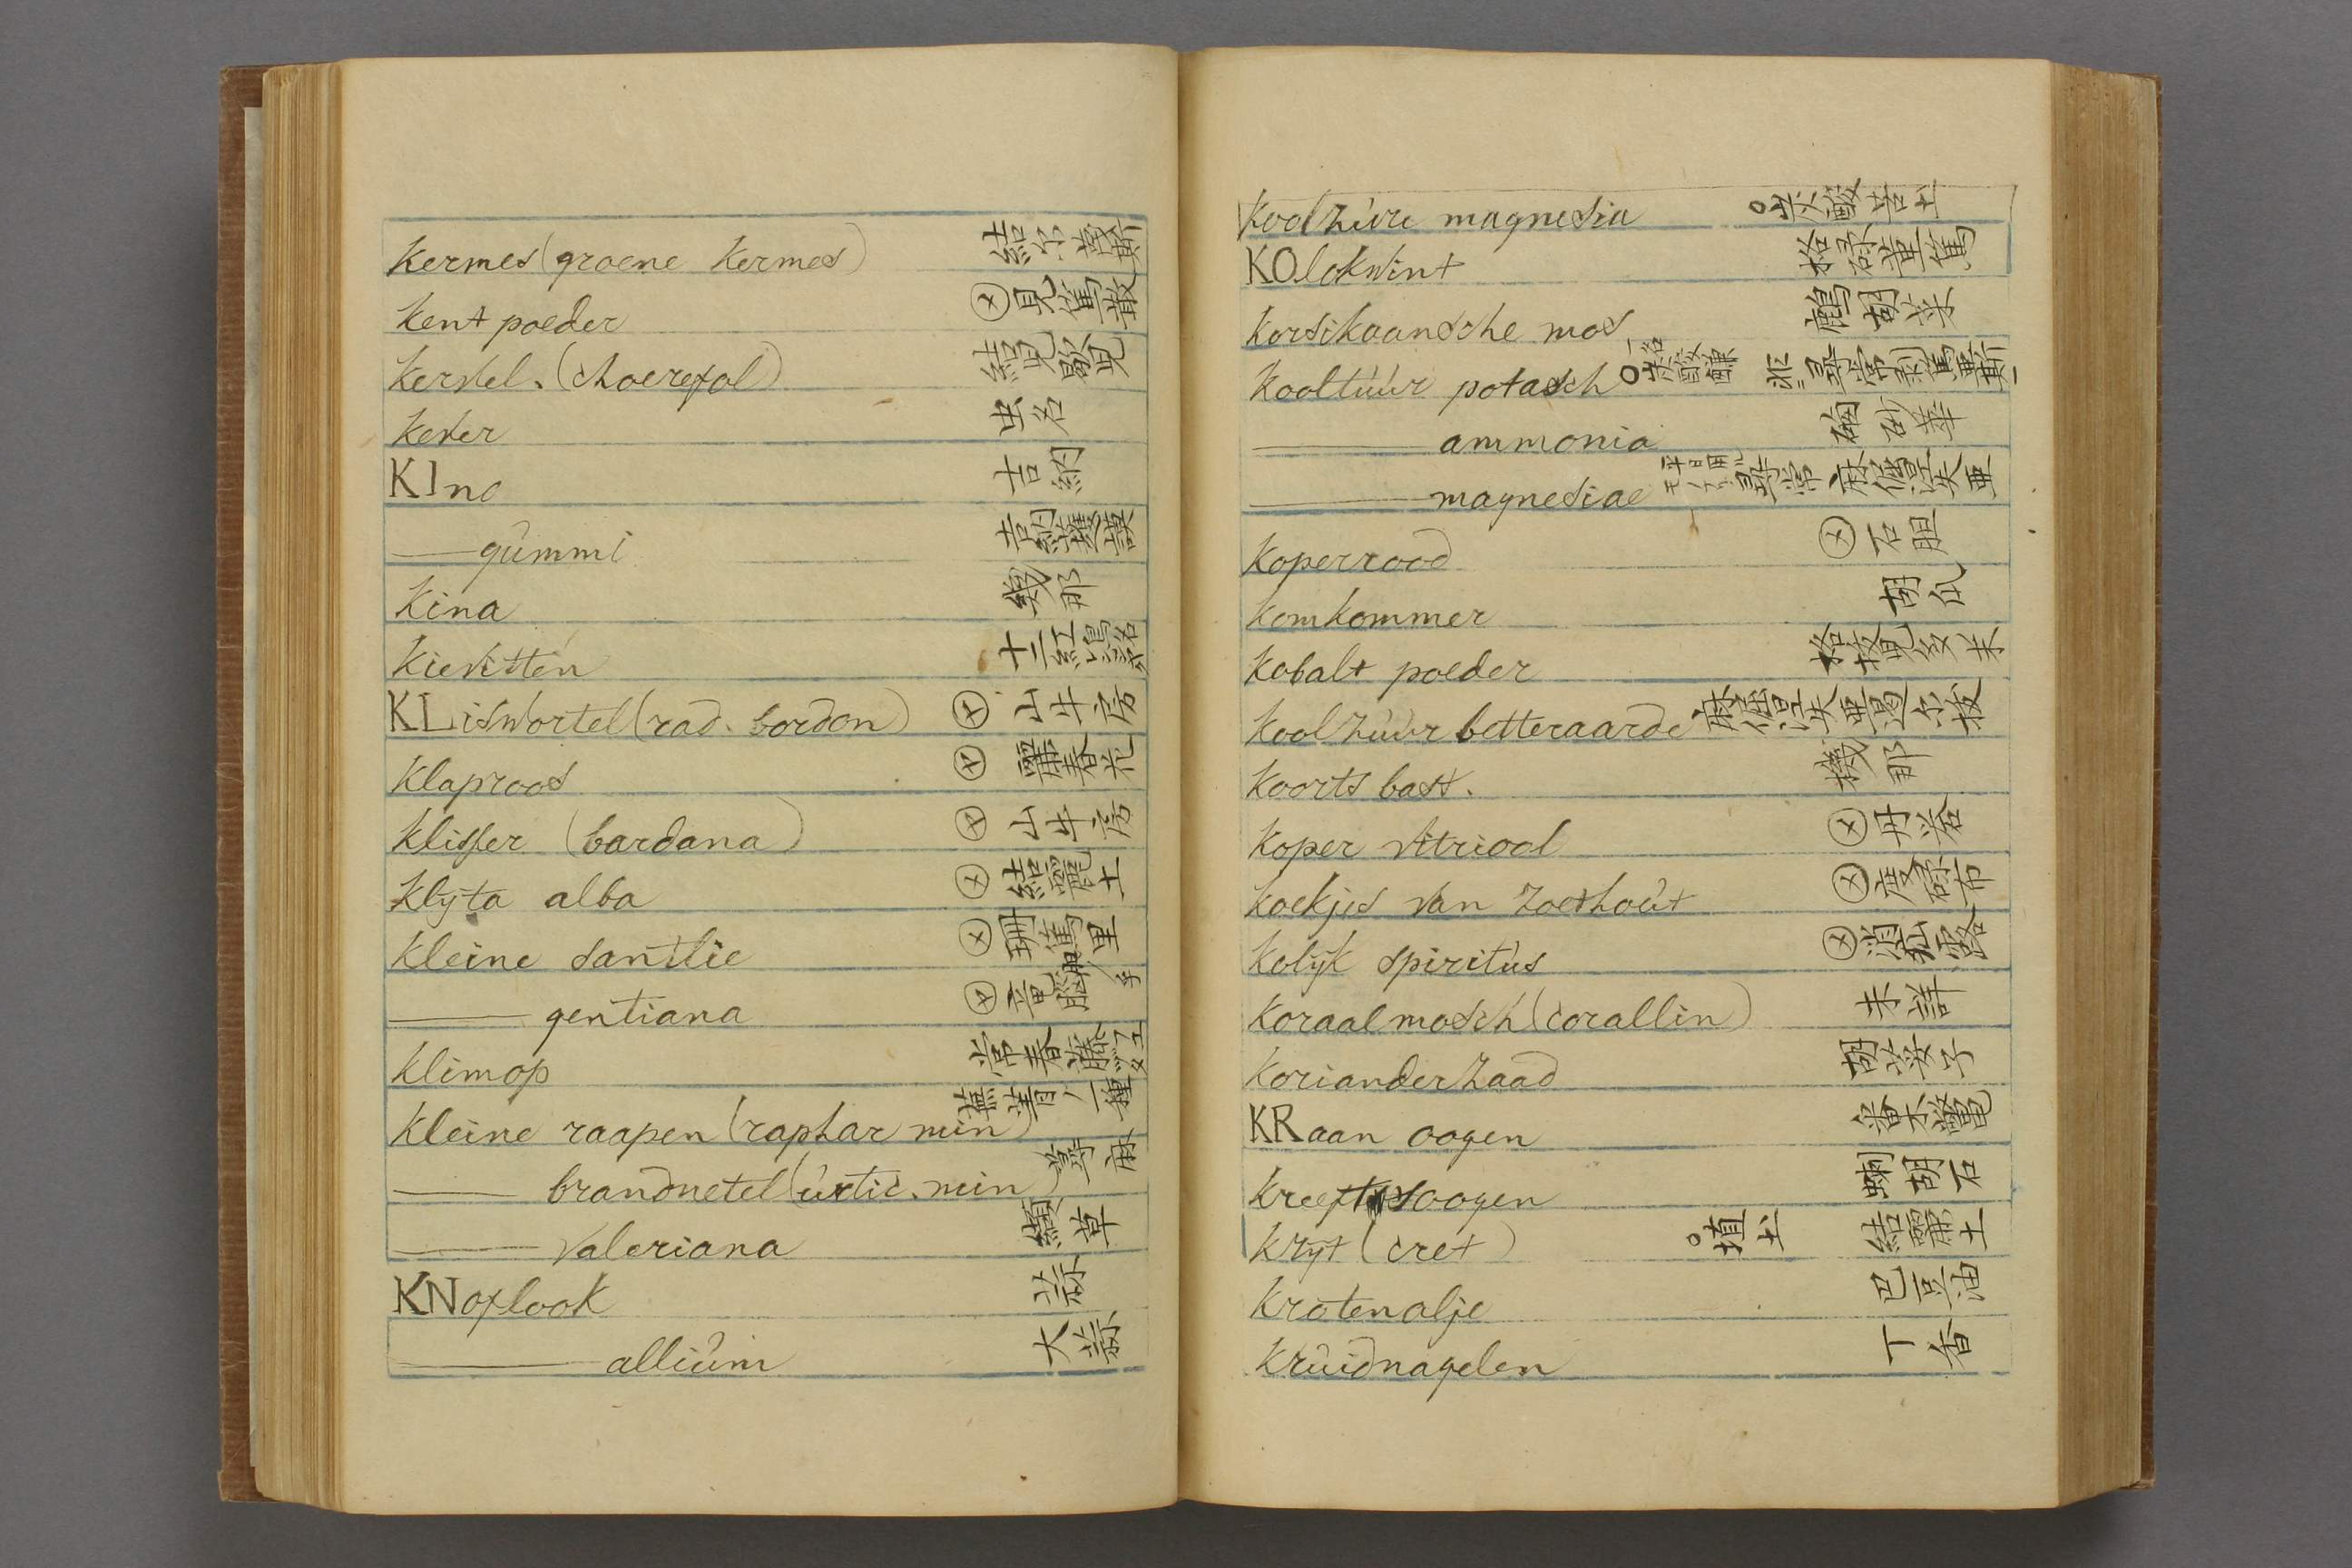 Kermes (groene Kermes) 結尓蔑斯
Kent poeder 見篤散
Kervel. (choerefol)
Kever 虫名
KIno 吉納
—— gummi 吉納護謨
Kina 幾那
Kievitten
KLiswortel (rad. bordon) 山牛房
Klaproos 麗春花
Klisser (bardana) 山牛房
Klyta alba 結麗土
Kleine santilie 珊篤里
—— gentiana 竜脳
Klimop 常春藤
Kleine raapen (raphar min) 蕪菁ノ一種
—— brandnetel (urtic. min) 蕁麻
—— valeriana 纈草
KNoflook 蒜
—— allium 大蒜
Koolzuur magnesia 炭酸苦土
KOlokwint
Korsikaansche mos 鷓胡菜
Kooltuur potasch
—— ammonia 硇砂華
—— magnesiae
Koperrood 石胆
Komkommer 胡瓜
Kobalt poeder
Koolzuur betteraarde
Koorts bast. 機那
Koper vitriool 丹礬
Koekjes van zoethout
Kolyk spiritus
Koraal mosch (corallin) 未詳
Koriander zaad 胡荽子
KRaan oogen 番木鼈
Kreeftsoogen 蜊胡石
Kryt (cret) 埴土 結麗土
Krotenolje 巴豆油
Kruidnagelen 丁香